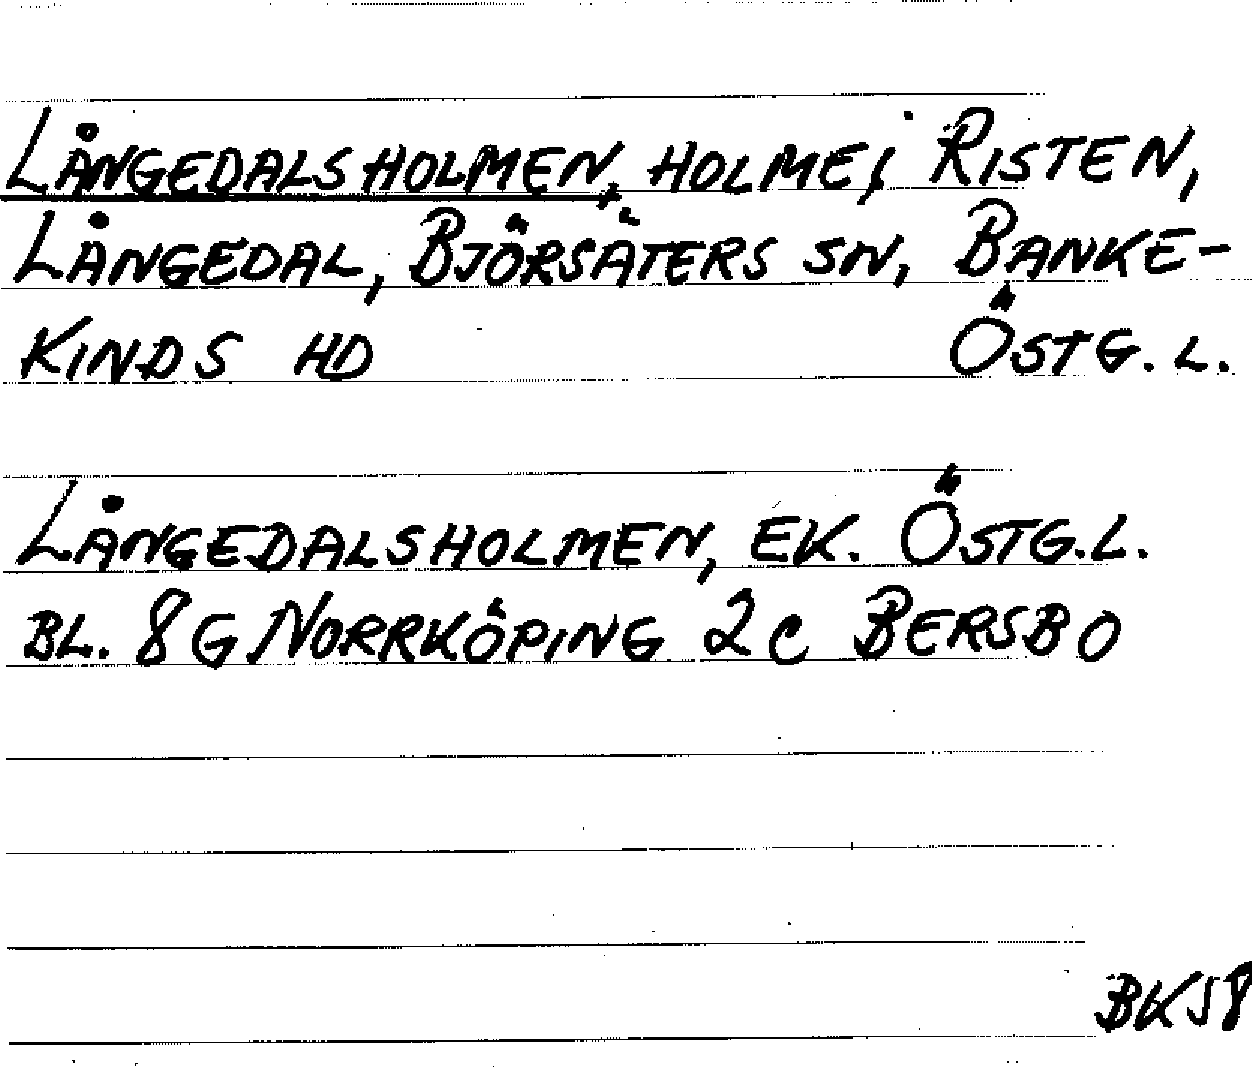 LÅNGEDALSHOLMEN, HOLME I RISTEN,
LÅNGEDAL, BJÖRSÄTERS SN, BANKE-
KINDS HD ÖSTG. L.
LÅNGEDALSHOLMEN, EK. ÖSTG.L.
BL. 8G NORRKÖPING 2C BERSBO
BK58